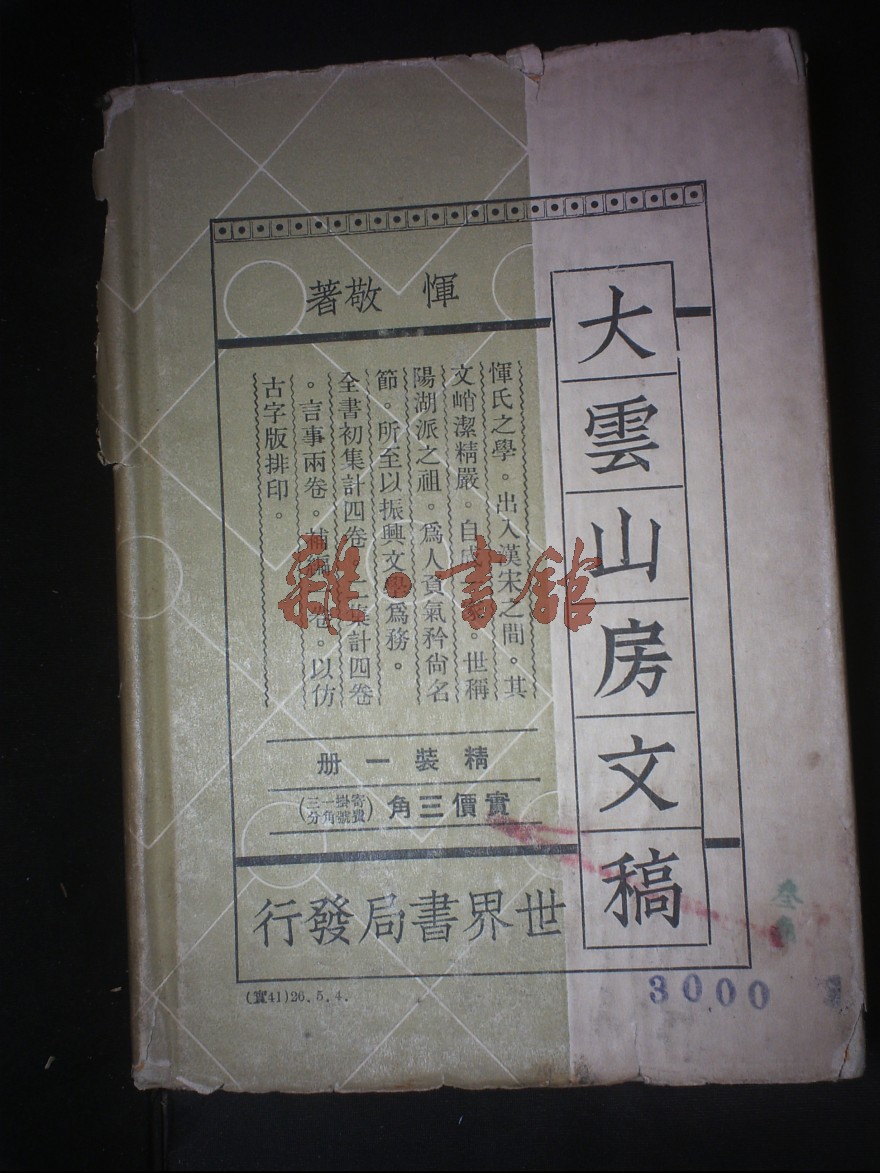 大雲山房文稿
惲敬著
惲氏之學。出入漢宋之間。其
文峭潔精嚴。自成一家。世稱
陽湖派之祖。爲人負氣矜尙名
節。所至以振興文學爲務。
全書初集計四卷二集計四卷
。言事兩卷。補編一卷。以仿
古字版排印。
精裝一册
實價三角(寄費掛號一角三分)
世界書局發行
(實41)26.5.4.
3000
雜·書館